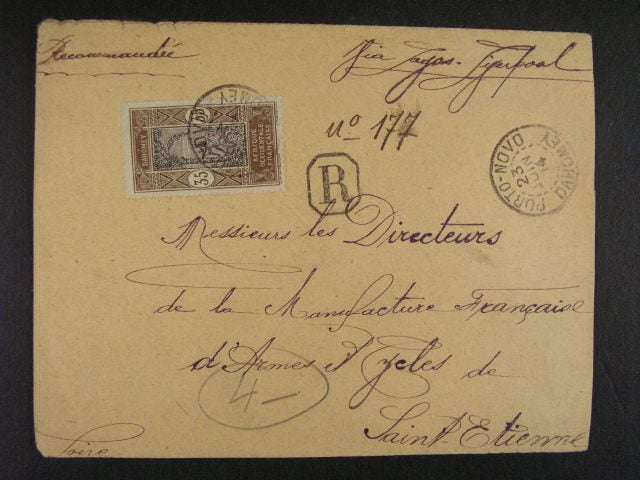 Recommandée
Via Lagos-Liverpool
DAHOMEY
AFRIQUE
OCCIDENTALE
FRANÇAISE
35
No 177
R
PORTO-NOVO DAHOMEY
23 JUIN
Messieurs les Directeurs
de la Manufacture Française
d'Armes & Cycles de
Saint-Etienne
4-
Loire